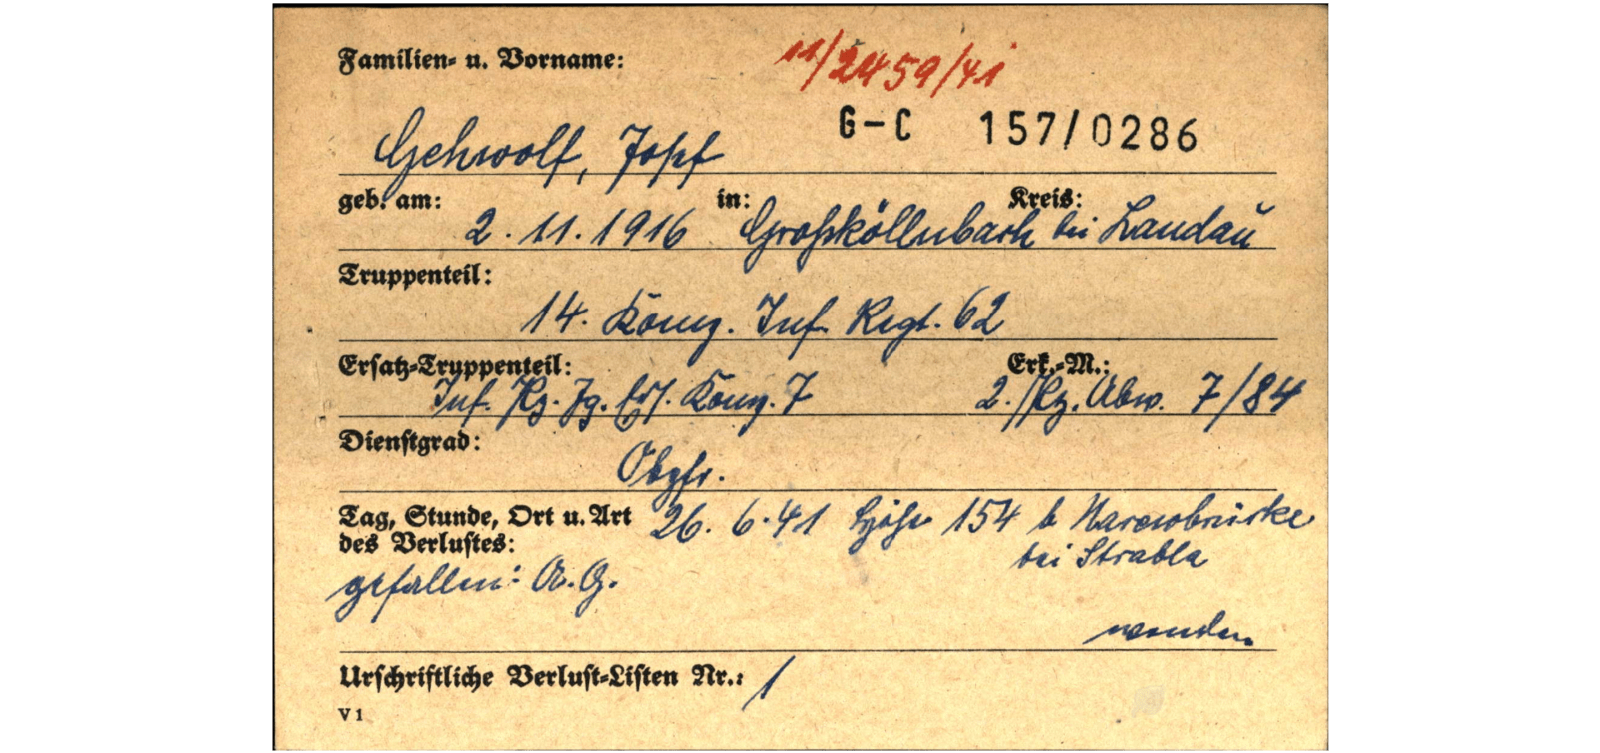 Familien- u. Vorname:
11/2459/41
G-C 157/0286
Gehwolf, Josef
geb. am: in: Kreis:
2. 11. 1916 Großköllnbach bei Landau
Truppenteil:
14. Komp. Inf. Regt. 62
Ersatz-Truppenteil: Erk.-M.:
Inf. Pz. Jg. Ers. Komp. 7 2./Pz. Abw. 7/84
Dienstgrad:
Obgfr.
Tag, Stunde, Ort u. Art 26. 6. 41 Höhe 154 b Narewbrücke
des Verlustes: bei Strabla
gefallen: A.G.
wenden
Urschriftliche Verlust-Listen Nr.: 1
V 1